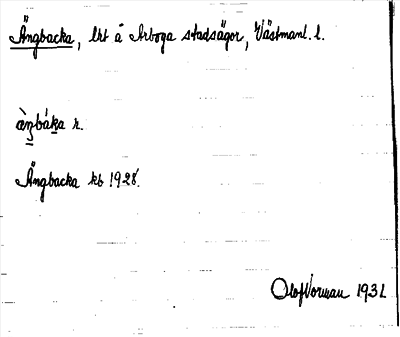 Ängbacka, lht å Arboga stadsägor, Västmanl. l.
æ̀ŋbáka r.
Ängbacka kb 1928.
Olof Vorman 1931